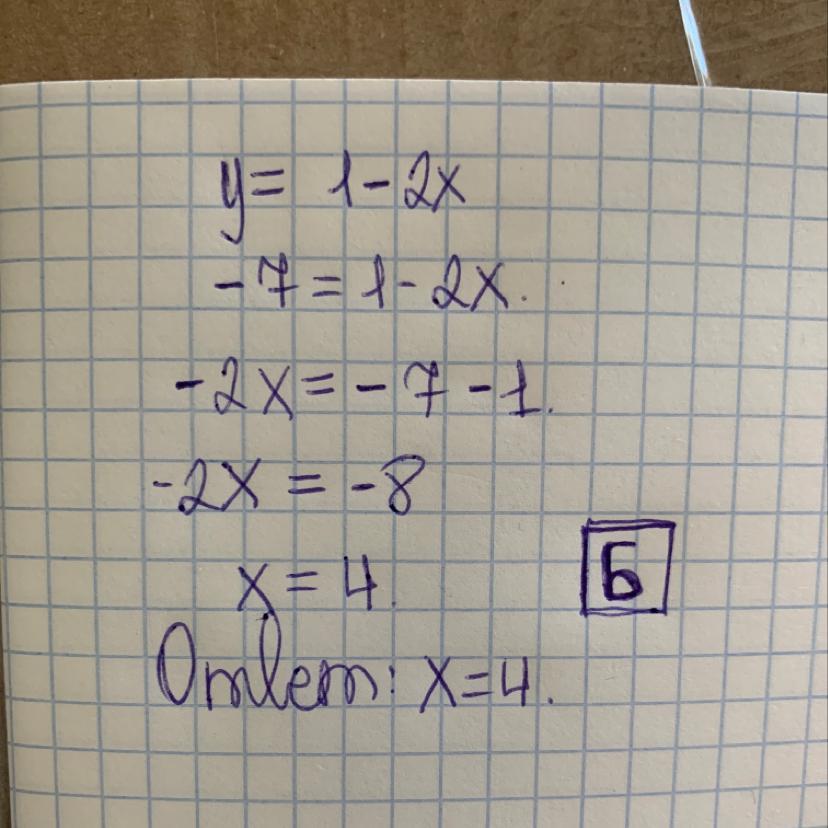 y = 1 - 2x
-7 = 1 - 2x.
-2x = -7 - 1.
-2x = -8
x = 4.
Б
Ответ: x = 4.